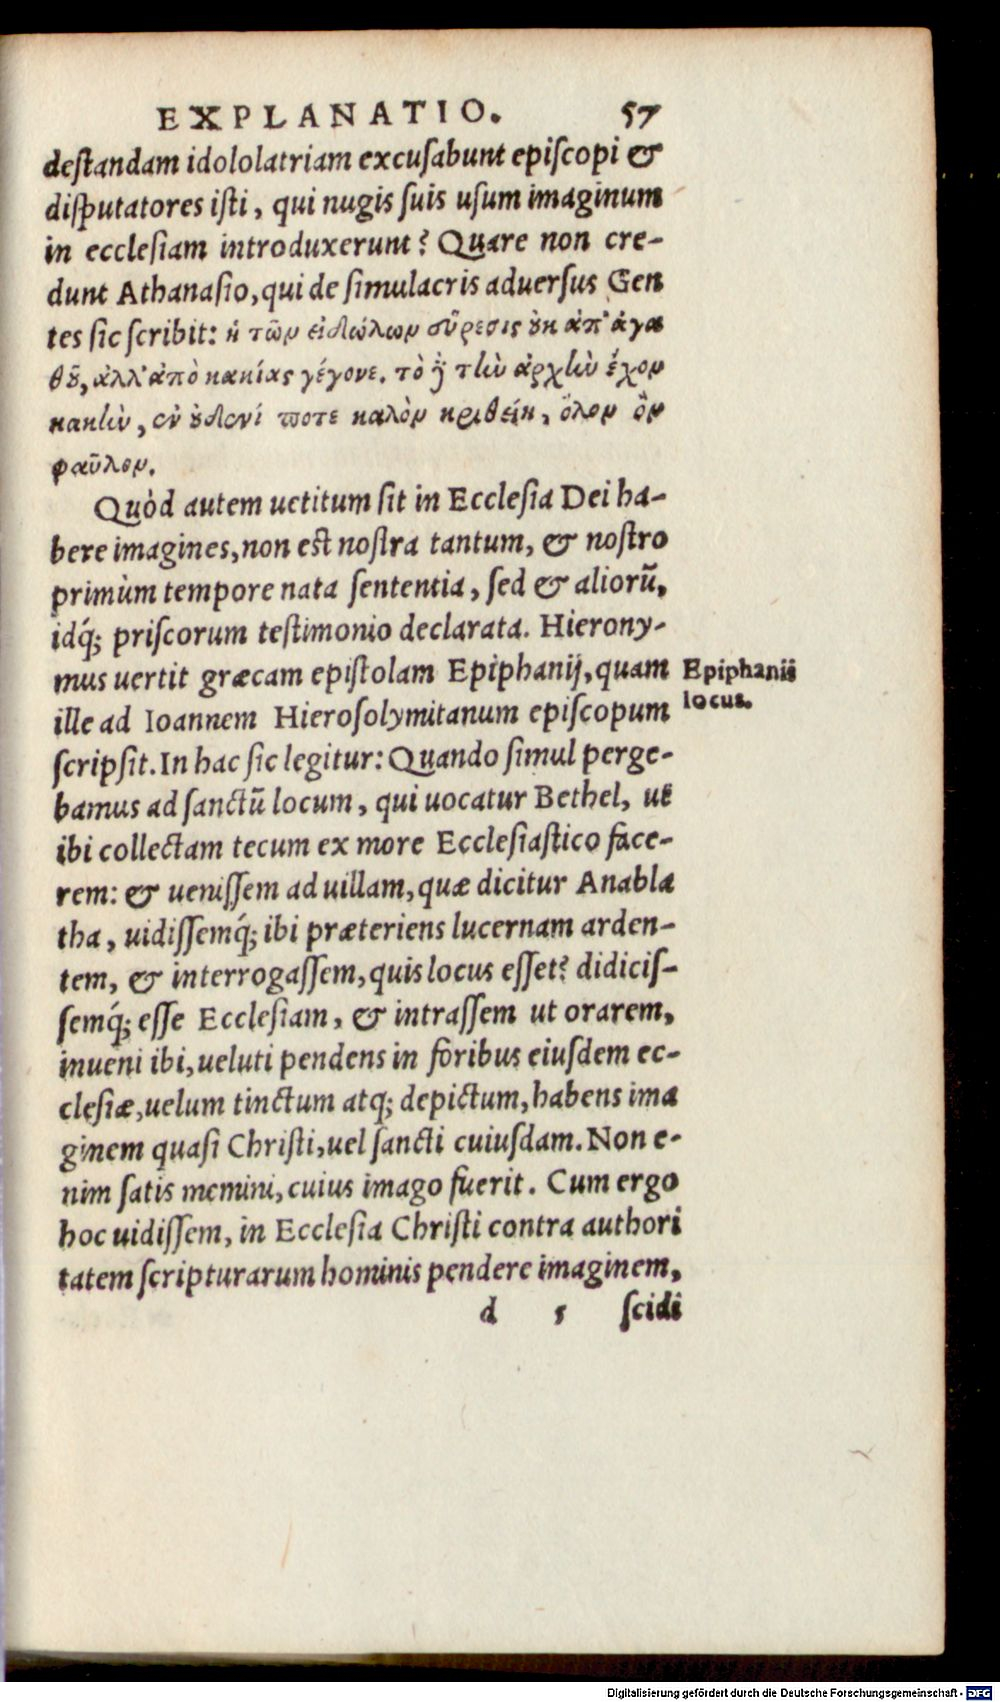 EXPLANATIO. 57
destandam idololatriam excusabunt episcopi &
disputatores isti, qui nugis suis usum imaginum
in ecclesiam introduxerunt? Quare non cre-
dunt Athanasio, qui de simulacris aduersus Gen
tes sic scribit: ἡ τῶν εἰδώλων εὕρεσις οὐκ ἀπ' ἀγα
θοῦ, ἀλλ' ἀπὸ κακίας γέγονε. τὸ δὲ τὴν ἀρχὴν ἔχον
κακὴν, ἐν οὐδενί ποτε καλὸν κριθείη, ὅλον ὂν
φαῦλον.
Quòd autem uetitum sit in Ecclesia Dei ha-
bere imagines, non est nostra tantum, & nostro
primùm tempore nata sententia, sed & aliorũ,
idq́; priscorum testimonio declarata. Hierony-
mus uertit græcam epistolam Epiphanij, quam
ille ad Ioannem Hierosolymitanum episcopum
scripsit. In hac sic legitur: Quando simul perge-
bamus ad sanctũ locum, qui uocatur Bethel, ut
ibi collectam tecum ex more Ecclesiastico face-
rem: & uenissem ad uillam, quæ dicitur Anabla
tha, uidissemq́; ibi præteriens lucernam arden-
tem, & interrogassem, quis locus esset? didicis-
semq́; esse Ecclesiam, & intrassem ut orarem,
inueni ibi, ueluti pendens in foribus eiusdem ec-
clesiæ, uelum tinctum atq; depictum, habens ima
ginem quasi Christi, uel sancti cuiusdam. Non e-
nim satis memini, cuius imago fuerit. Cum ergo
hoc uidissem, in Ecclesia Christi contra authori
tatem scripturarum hominis pendere imaginem,
d 5 scidi
Epiphanii
locus.
Digitalisierung gefördert durch die Deutsche Forschungsgemeinschaft - DFG